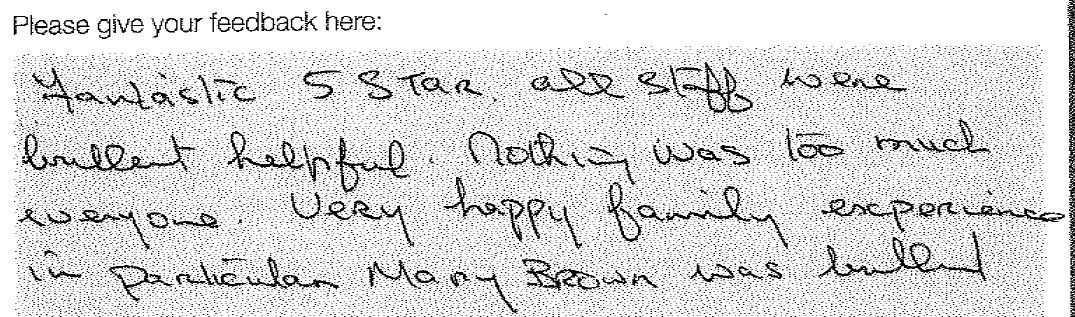 Please give your feedback here:
Fantastic 5 STAR. all staff were
brullent helpful. Nothing was too much
everyone. Very happy family experience
in particular Mary Brown was brullent